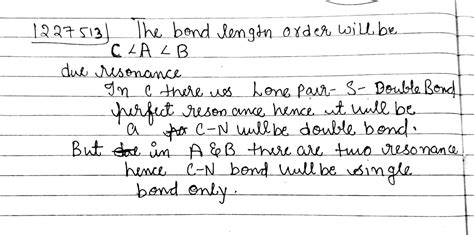 1227513] The bond length order will be
C < A < B
due resonance
In C there us Lone Pair - S - Double Bond
perfect resonance hence it will be
a C-N will be double bond.
But in A & B there are two resonance
hence C-N bond will be single
bond only.